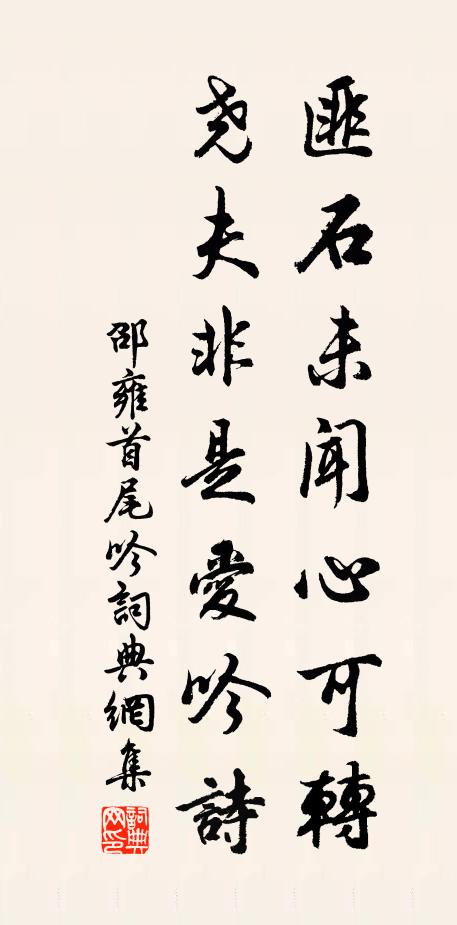 匪石未聞心可轉
尧夫非是愛吟詩
邵雍首尾吟詞典網集
詞典网印